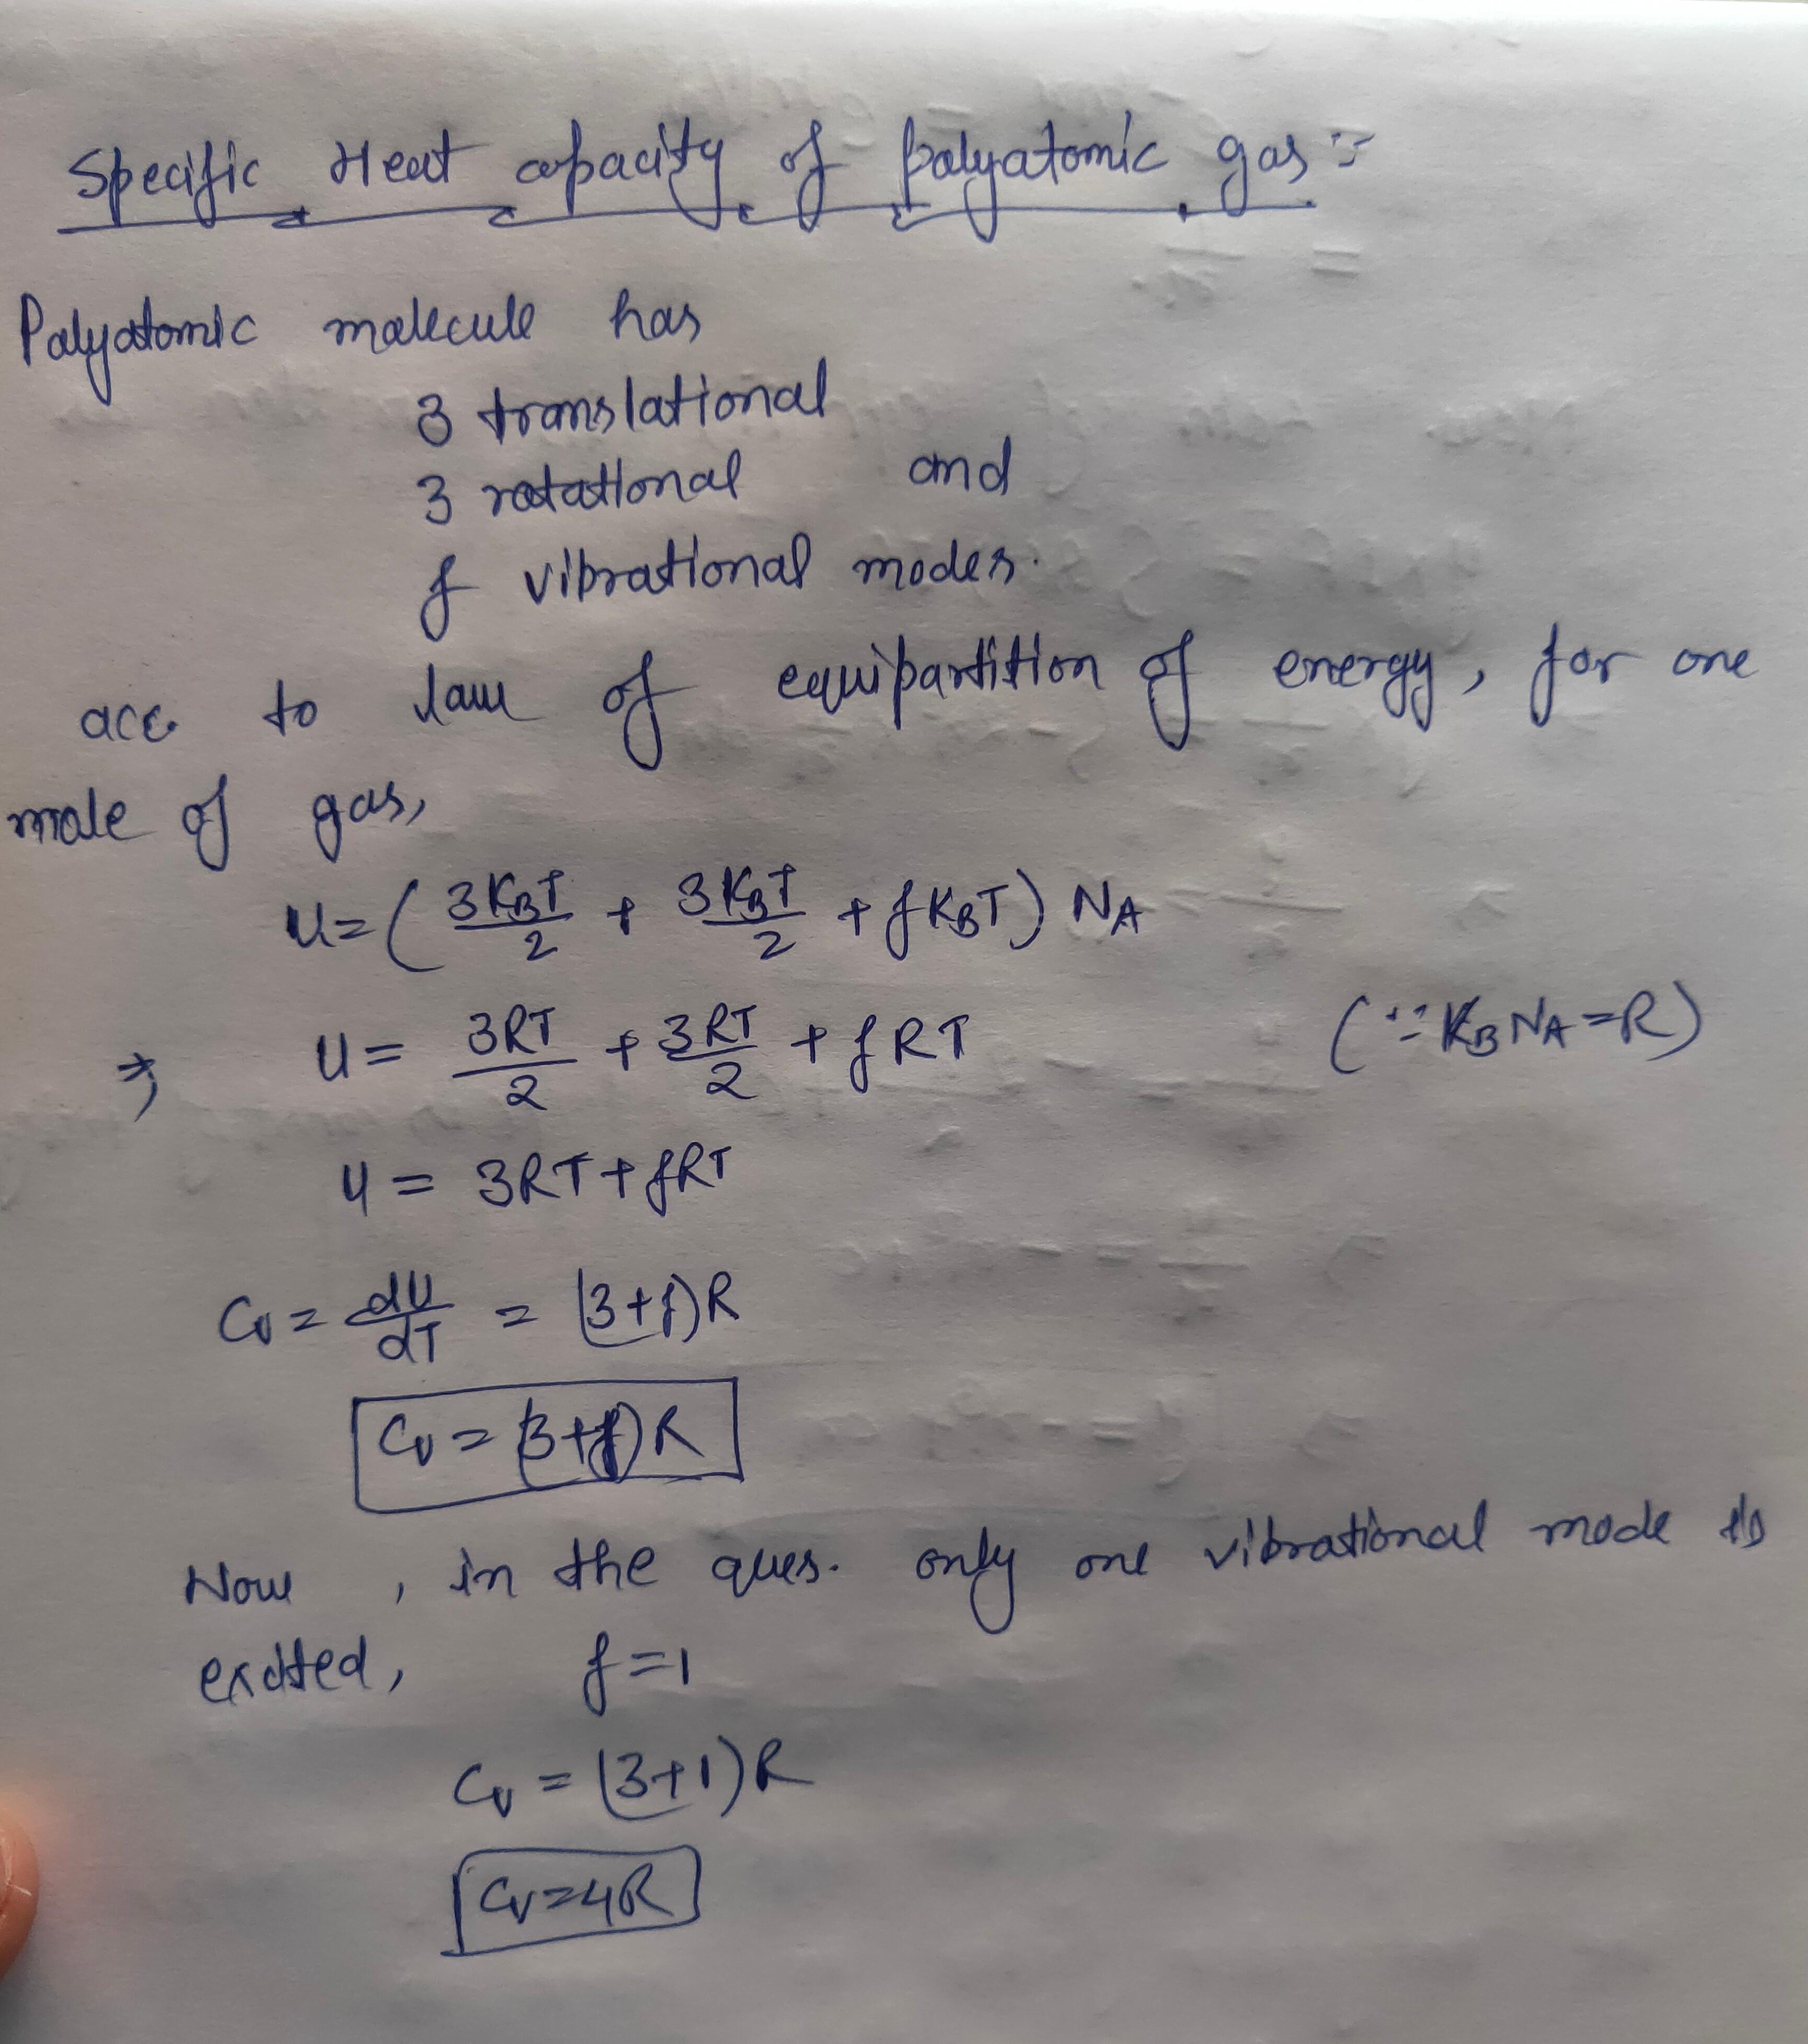 Specific Heat capacity of polyatomic gas :-
Polyatomic molecule has
3 translational
3 rotational and
f vibrational modes.
acc. to law of equipartition of energy, for one
mole of gas,
U = ( 3K_BT/2 + 3K_BT/2 + fK_BT) N_A
⇒ U = 3RT/2 + 3RT/2 + fRT (∵ K_B N_A = R)
U = 3RT + fRT
C_v = dU/dT = (3+f)R
C_v = (3+f)R
Now, in the ques. only one vibrational mode is
excited, f = 1
C_v = (3+1)R
C_v = 4R